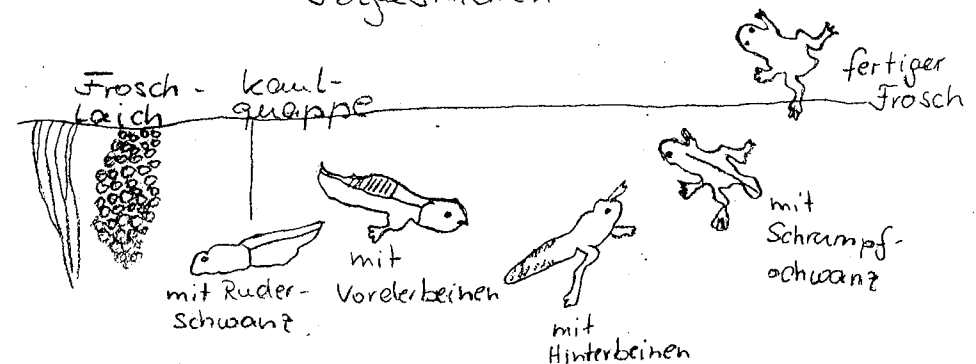 Frosch-
Laich
Kaul-
quappe
fertiger
Frosch
mit Ruder-
schwanz.
mit
Vorderbeinen
mit
Hinterbeinen
mit
Schrumpf-
schwanz